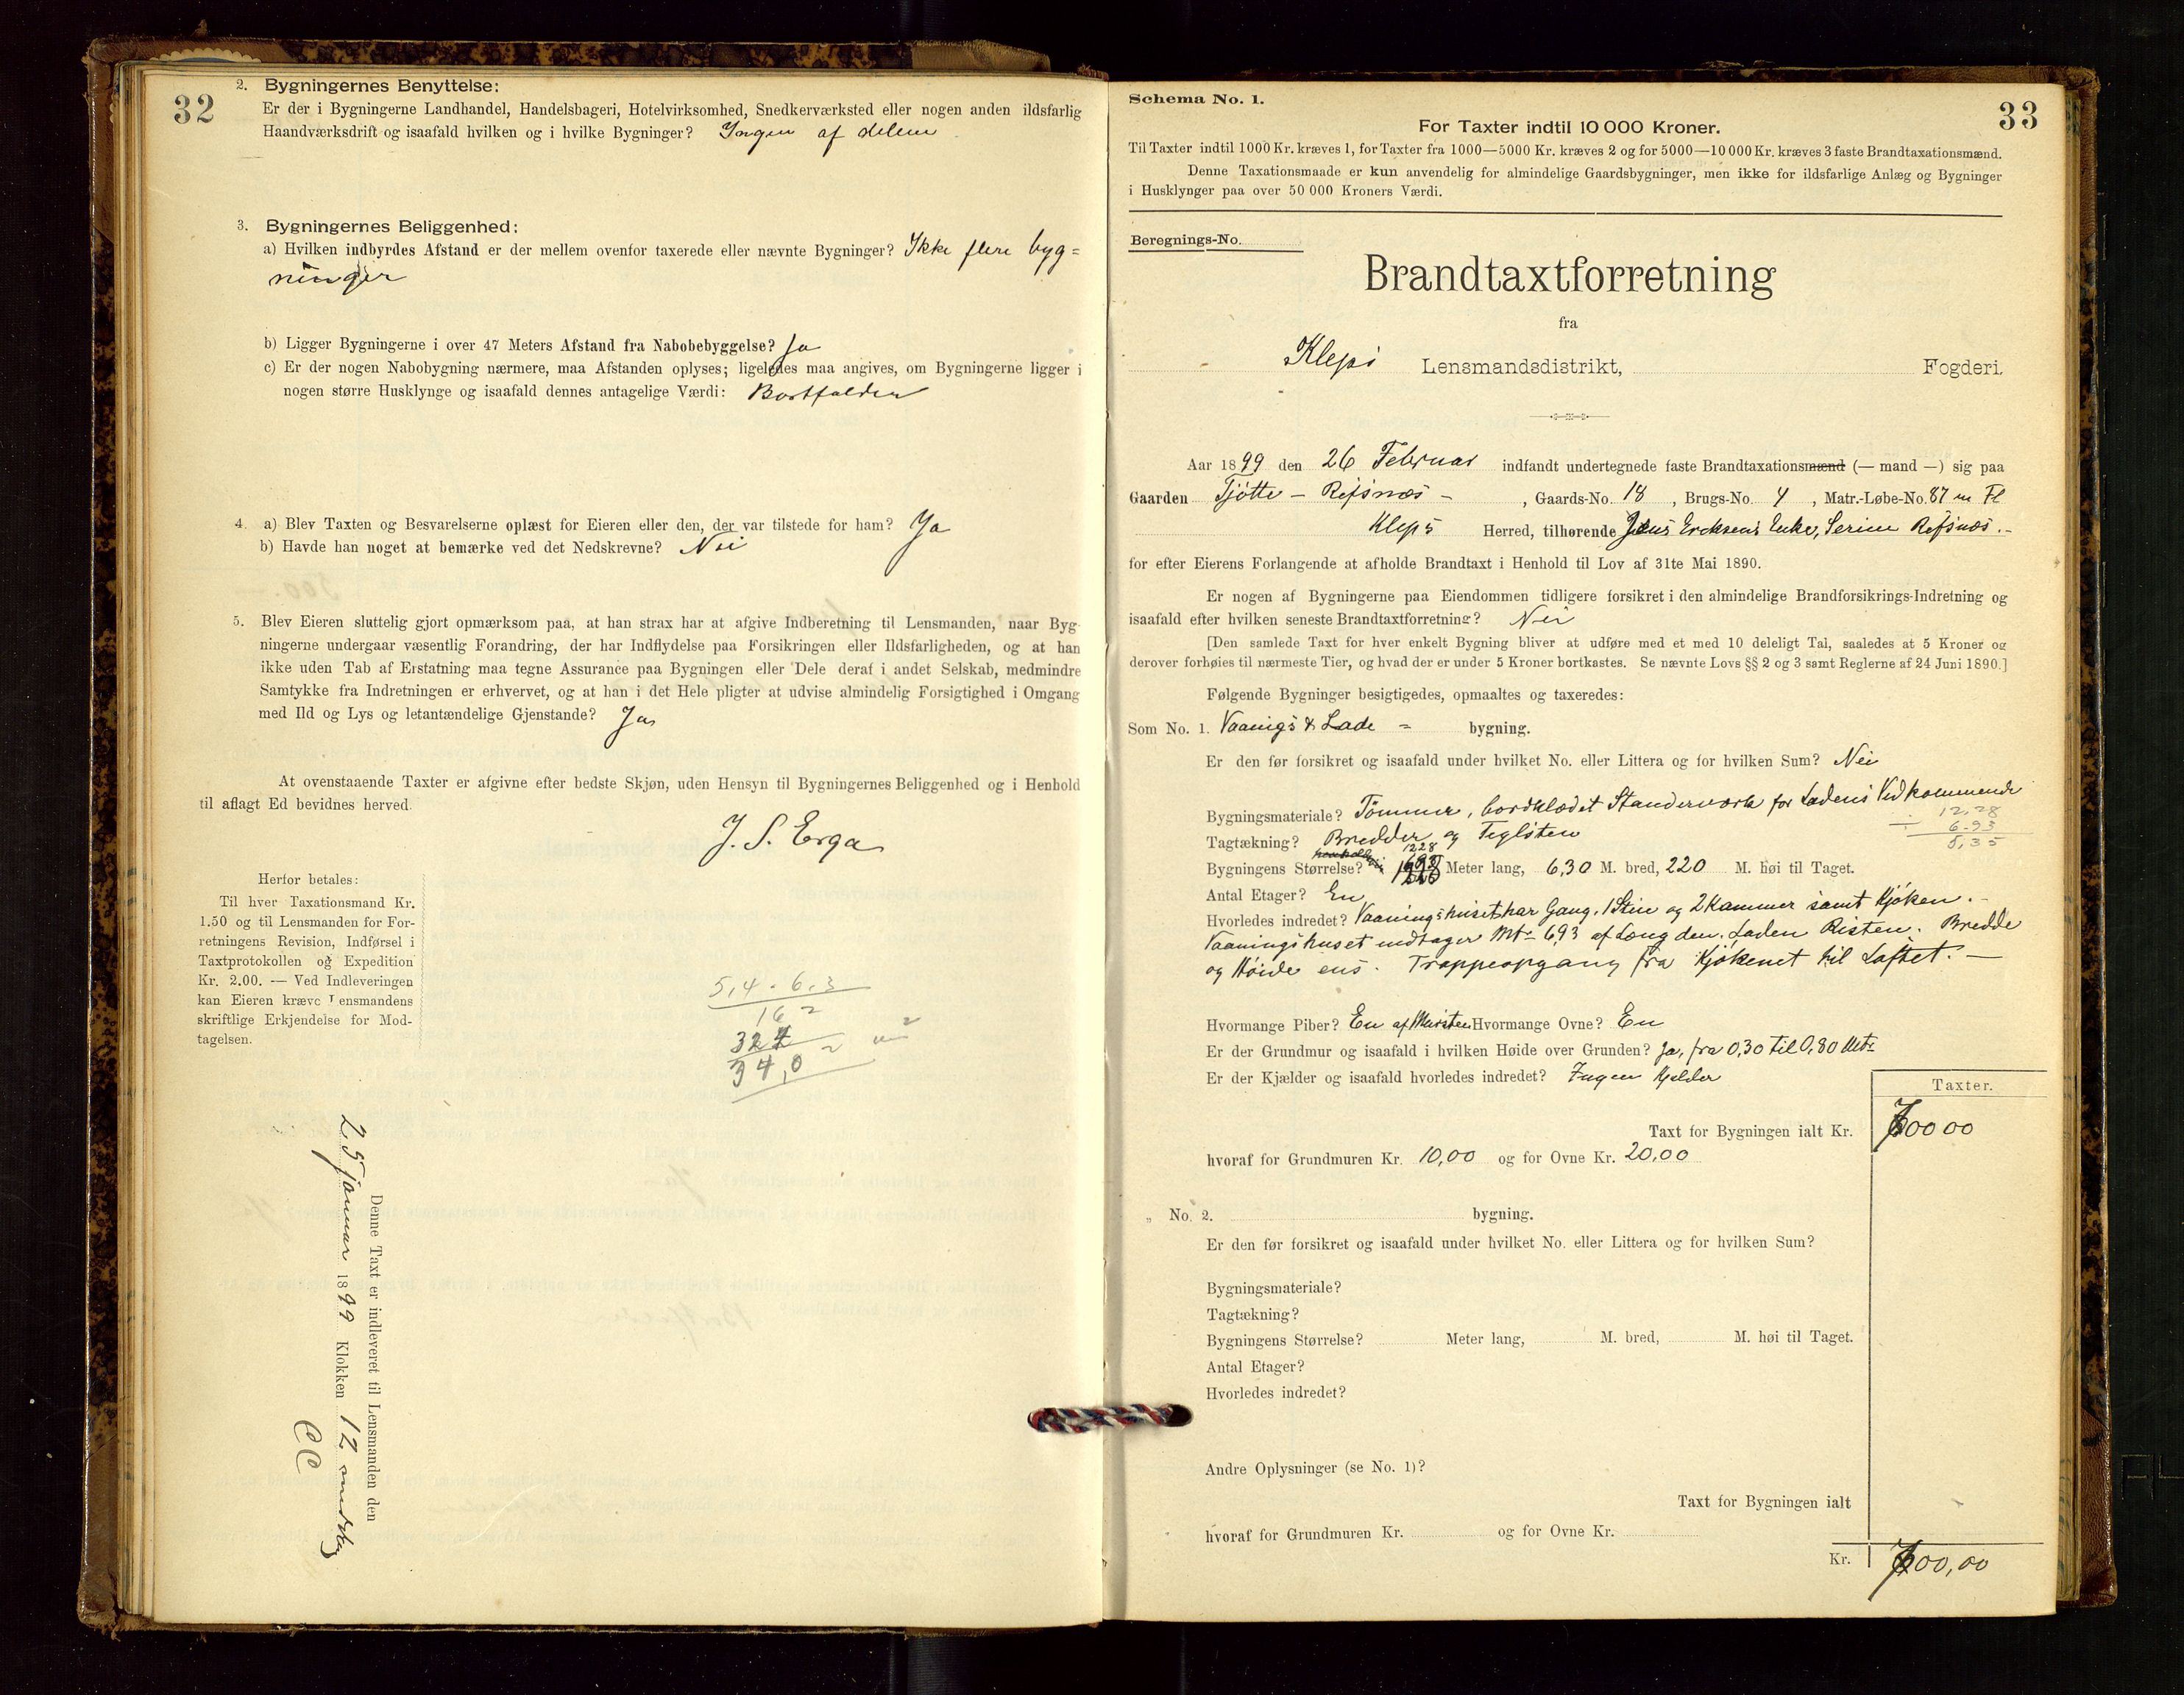 32
2. Bygningernes Benyttelse:
Er der i Bygningerne Landhandel, Handelsbageri, Hotelvirksomhed, Snedkerværksted eller nogen anden ildsfarlig
Haandværksdrift og isaafald hvilken og i hvilke Bygninger? Ingen af delene
3. Bygningernes Beliggenhed:
a) Hvilken indbyrdes Afstand er der mellem ovenfor taxerede eller nævnte Bygninger? Ikke flere byg=
ninger
b) Ligger Bygningerne i over 47 Meters Afstand fra Nabobebyggelse? Ja
c) Er der nogen Nabobygning nærmere, maa Afstanden oplyses; ligeledes maa angives, om Bygningerne ligger i
nogen større Husklynge og isaafald dennes antagelige Værdi: Bortfalder
4. a) Blev Taxten og Besvarelserne oplæst for Eieren eller den, der var tilstede for ham? Ja
b) Havde han noget at bemærke ved det Nedskrevne? Nei
5. Blev Eieren sluttelig gjort opmærksom paa, at han strax har at afgive Indberetning til Lensmanden, naar Byg
ningerne undergaar væsentlig Forandring, der har Indflydelse paa Forsikringen eller Ildsfarligheden, og at han
ikke uden Tab af Erstatning maa tegne Assurance paa Bygningen eller Dele deraf i andet Selskab, medmindre
Samtykke fra Indretningen er erhvervet, og at han i det Hele pligter at udvise almindelig Forsigtighed i Omgang
med Ild og Lys og letantændelige Gjenstande? Ja
At ovenstaaende Taxter er afgivne efter bedste Skjøn, uden Hensyn til Bygningernes Beliggenhed og i Henhold
til aflagt Ed bevidnes herved.
J. S. Erga
Herfor betales:
Til hver Taxationsmand Kr.
1.50 og til Lensmanden for For-
retningens Revision, Indførsel i
Taxtprotokollen og Expedition
Kr. 2.00. — Ved Indleveringen
kan Eieren kræve Lensmandens
skriftlige Erkjendelse for Mod-
tagelsen.
5,4 . 6,3
162
324
34,02 m²
Denne Taxt er indleveret til Lensmanden den
25 januar 1899 Klokken 12 middag
33
Schema No. 1.
For Taxter indtil 10 000 Kroner.
Til Taxter indtil 1000 Kr. kræves 1, for Taxter fra 1000—5000 Kr. kræves 2 og for 5000—10 000 Kr. kræves 3 faste Brandtaxationsmænd.
Denne Taxationsmaade er kun anvendelig for almindelige Gaardsbygninger, men ikke for ildsfarlige Anlæg og Bygninger
i Husklynger paa over 50 000 Kroners Værdi.
Beregnings-No.
Brandtaxtforretning
fra
Klepp Lensmandsdistrikt, Fogderi.
Aar 1899 den 26 Februar indfandt undertegnede faste Brandtaxationsmænd (— mand —) sig paa
Gaarden Tjøtte – Refsnæs – , Gaards-No. 18 , Brugs-No. 4 , Matr.-Løbe-No. 87 m Fl
Klepp Herred, tilhørende Jens Ericksens Enke, Serine Refsnæs.-
for efter Eierens Forlangende at afholde Brandtaxt i Henhold til Lov af 31te Mai 1890.
Er nogen af Bygningerne paa Eiendommen tidligere forsikret i den almindelige Brandforsikrings-Indretning og
isaafald efter hvilken seneste Brandtaxtforretning? Nei
[Den samlede Taxt for hver enkelt Bygning bliver at udføre med et med 10 deleligt Tal, saaledes at 5 Kroner og
derover forhøies til nærmeste Tier, og hvad der er under 5 Kroner bortkastes. Se nævnte Lovs §§ 2 og 3 samt Reglerne af 24 Juni 1890.]
Følgende Bygninger besigtigedes, opmaaltes og taxeredes:
Som No. 1. Vaanigs & Lade - bygning.
Er den før forsikret og isaafald under hvilket No. eller Littera og for hvilken Sum? Nei
Bygningsmateriale? Tømmer, bordklædet Standerværk for Ladens Vedkommende
12,28
Tagtækning? Bredder og Teglsten
÷ 6.93
5,35
Bygningens Størrelse? 12,28 Meter lang, 6,30 M. bred, 220 M. høi til Taget.
Antal Etager? En
Hvorledes indredet? Vaaningshuset har Gang, 1 Stue og 2 Kammer samt Kjøken.-
Vaaningshuset indtager Mtr 6,93 af Længden. Laden Resten. Bredde
og Høide ens. Trappeopgang fra Kjøkenet til Loftet.—
Hvormange Piber? En af Mursten Hvormange Ovne? En
Er der Grundmur og isaafald i hvilken Høide over Grunden? Ja, fra 0,30 til 0,80 Mtr
Er der Kjælder og isaafald hvorledes indredet? Ingen Kjelder
Taxter.
Taxt for Bygningen ialt Kr. 700 00
hvoraf for Grundmuren Kr. 10,00 og for Ovne Kr. 20,00
„ No. 2. bygning.
Er den før forsikret og isaafald under hvilket No. eller Littera og for hvilken Sum?
Bygningsmateriale?
Tagtækning?
Bygningens Størrelse? Meter lang, M. bred, M. høi til Taget.
Antal Etager?
Hvorledes indredet?
Andre Oplysninger (se No. 1)?
Taxt for Bygningen ialt
hvoraf for Grundmuren Kr. og for Ovne Kr.
Kr. 700,00